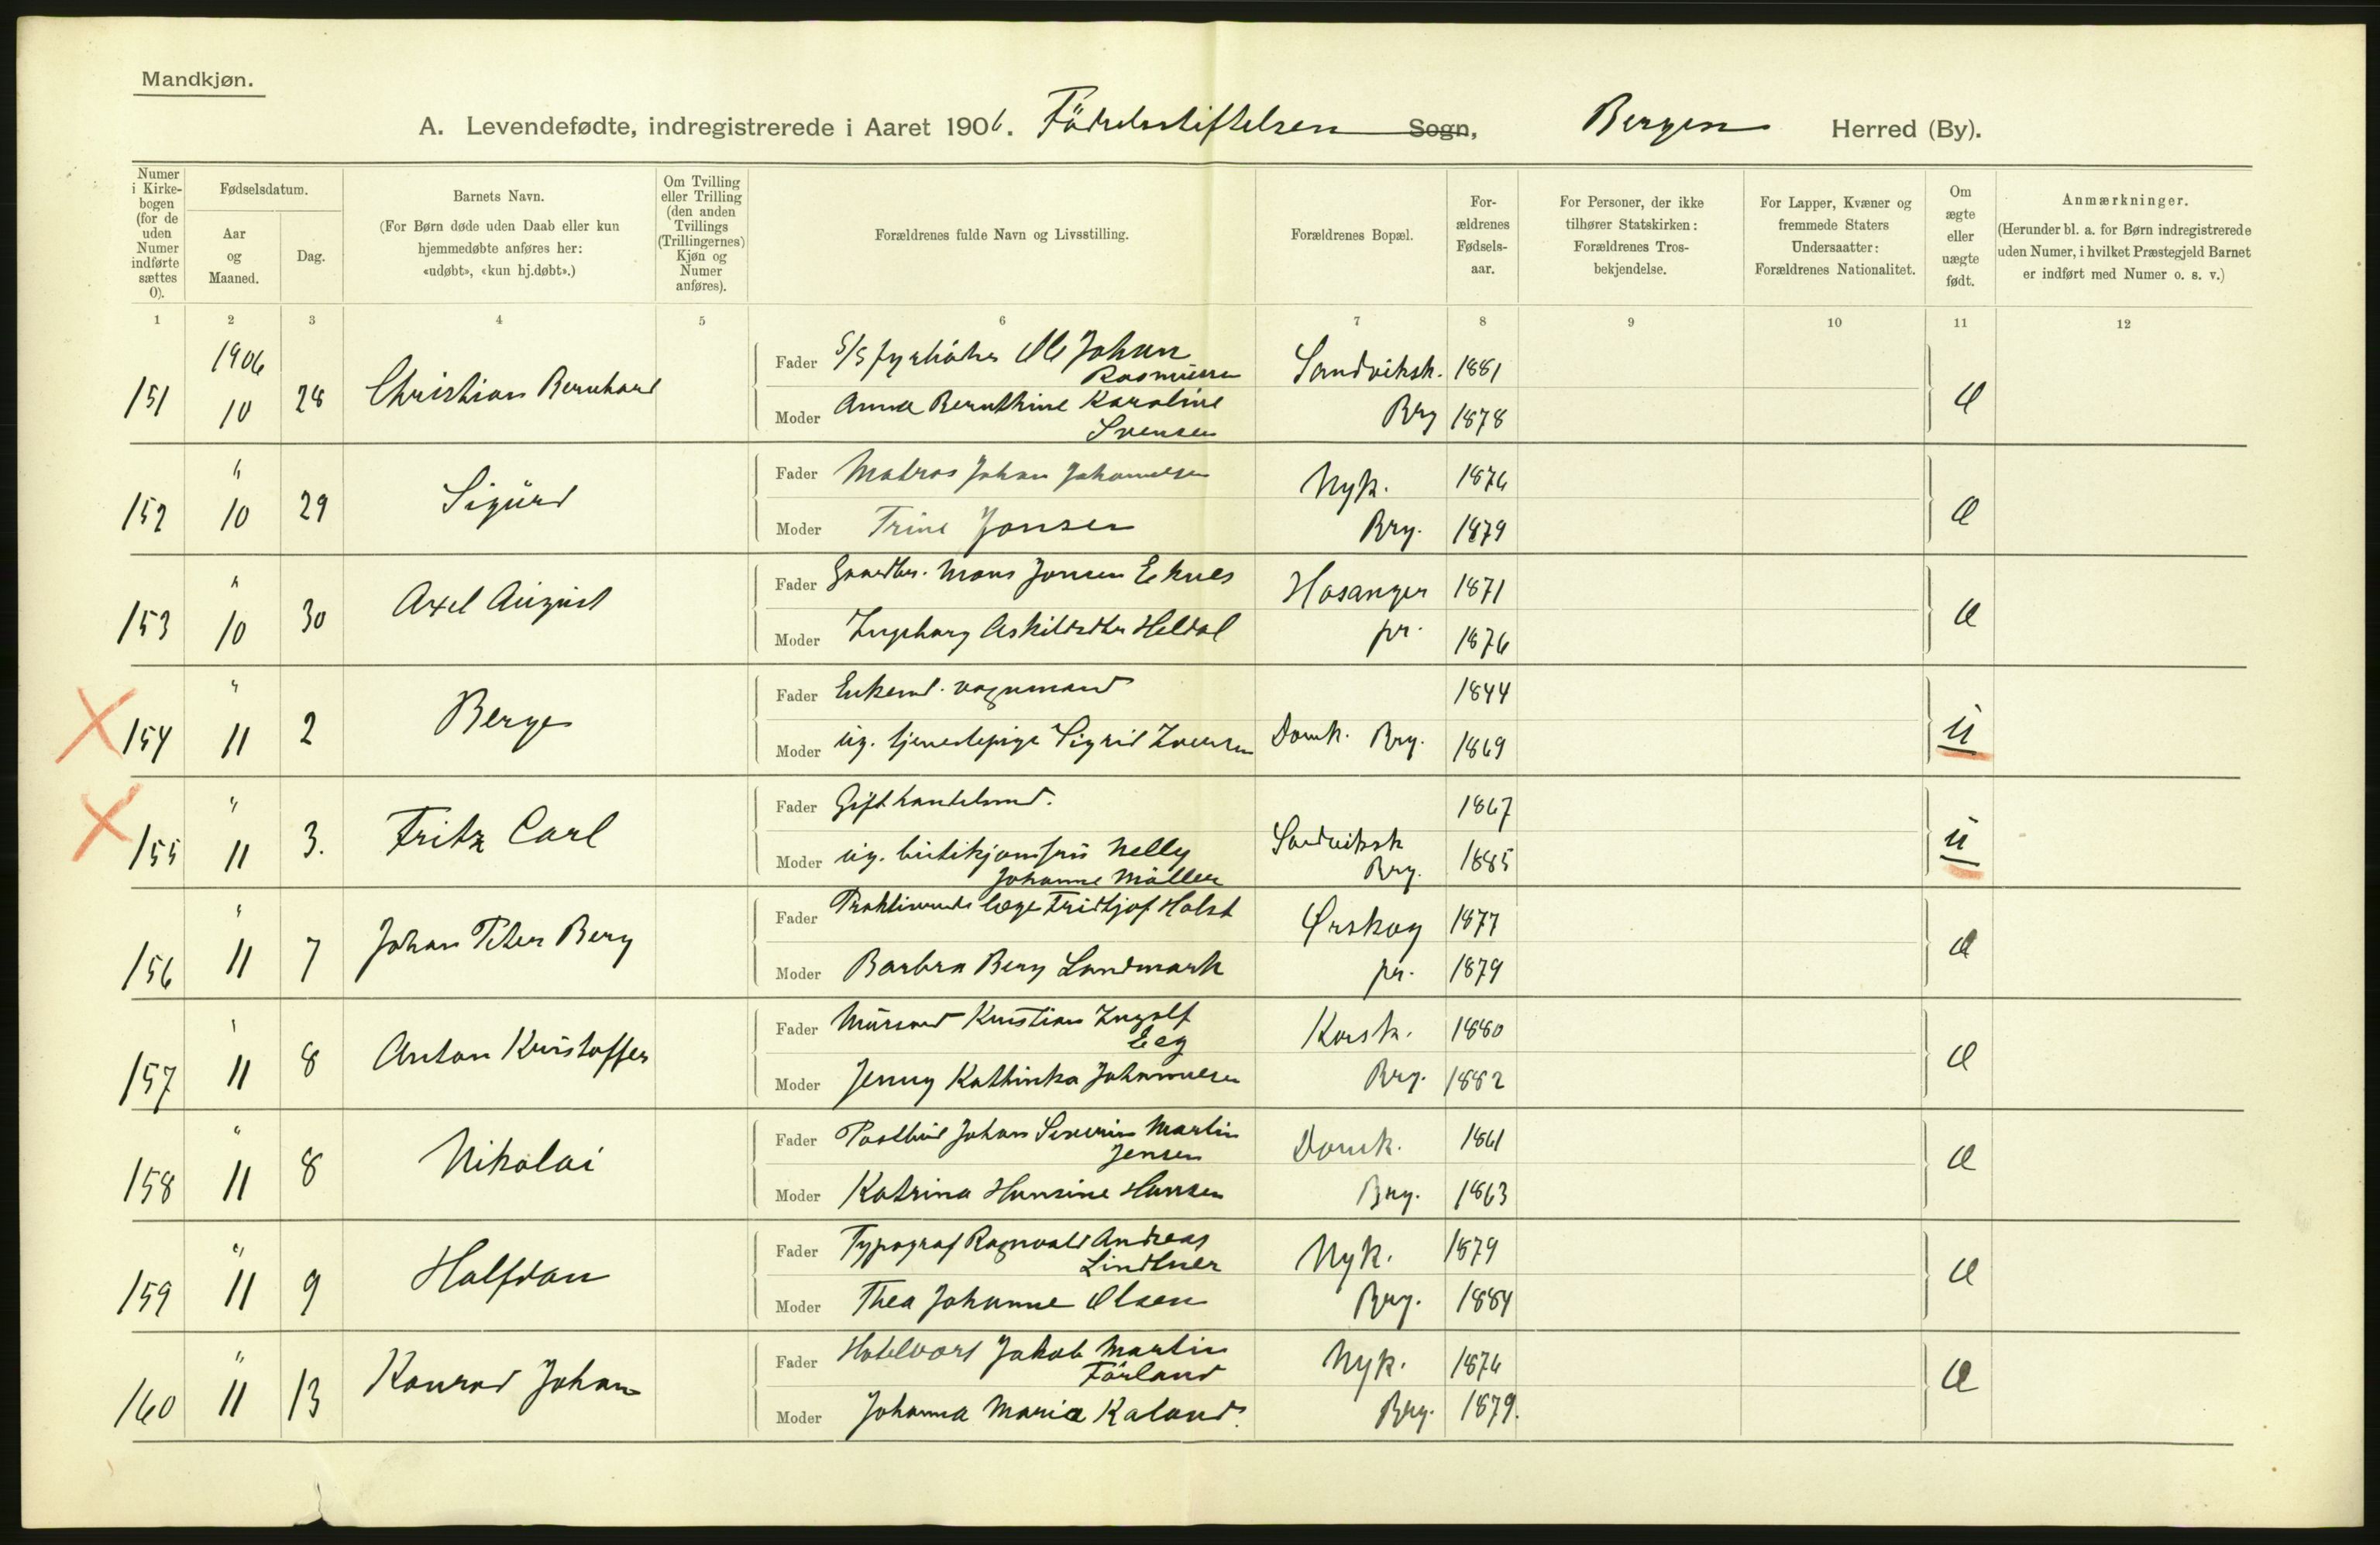 Mandkjøn.
A. Levendefødte, indregistrerede i Aaret 1906. Födselsstiftelsen Sogn, Bergen Herred (By).
Numer i Kirkebogen (for de uden Numer indførte sættes 0).
Fødselsdatum.
Aar og Maaned.
Dag.
Barnets Navn.
(For Børn døde uden Daab eller kun hjemmedøbte anføres her: «udøbt», «kun hj.døbt».)
Om Tvilling eller Trilling (den anden Tvillings (Trillingernes) Kjøn og Numer anføres).
Forældrenes fulde Navn og Livsstilling.
Forældrenes Bopæl.
Forældrenes Fødselsaar.
For Personer, der ikke tilhører Statskirken: Forældrenes Trosbekjendelse.
For Lapper, Kvæner og fremmede Staters Undersaatter: Forældrenes Nationalitet.
Om ægte eller uægte født.
Anmærkninger.
(Herunder bl. a. for Børn indregistrerede uden Numer, i hvilket Præstegjeld Barnet er indført med Numer o. s. v.)
1 2 3 4 5 6 7 8 9 10 11 12
151 1906 10 28 Christian Bernhard
Fader S/S fyrböter Ole Johan Rasmussen Sandviksk. 1881
Moder Anna Bernthine Karoline Svensen Brg 1878 Æ
152 " 10 29 Sigurd
Fader Matros Johan Johannesen Nyk. 1876
Moder Trine Jonsen Brg. 1879 Æ
153 " 10 30 Axel August
Fader Gaardbr. Mons Jonsen Eknes Hosanger 1871
Moder Ingeborg Askildsdtr Heldal pr. 1876 Æ
154 " 11 2 Berge
Fader Enkemd. vognmand 1844
Moder ug. tjenestepige Sigrid Iversen Domk. Brg. 1869 u
155 " 11 3. Fritz Carl
Fader Gift handelsmd. 1867
Moder ug. butikjomfru Nelly Johanne Möller Sandviksk Brg. 1885 u
156 " 11 7 Johan Peter Berg
Fader Praktiserende læge Fridtjof Holst Ørskog 1877
Moder Barbra Berg Landmark pr. 1879 Æ
157 " 11 8 Anton Kristoffer
Fader Mursvd Kristian Ingolf Eeg Korsk. 1880
Moder Jenny Kathinka Johannesen Brg. 1882 Æ
158 " 11 8 Nikolai
Fader Postbud Johan Severin Martin Jensen Domk. 1861
Moder Katrina Hansine Hansen Brg. 1863 Æ
159 " 11 9 Halfdan
Fader Typograf Ragnvald Andreas Lindtner Nyk. 1879
Moder Thea Johanne Olsen Brg. 1884 Æ
160 " 11 13 Konrad Johan
Fader Hotelvært Jakob Martin Förland Nyk. 1876
Moder Johanna Maria Kaland. Brg. 1879. Æ